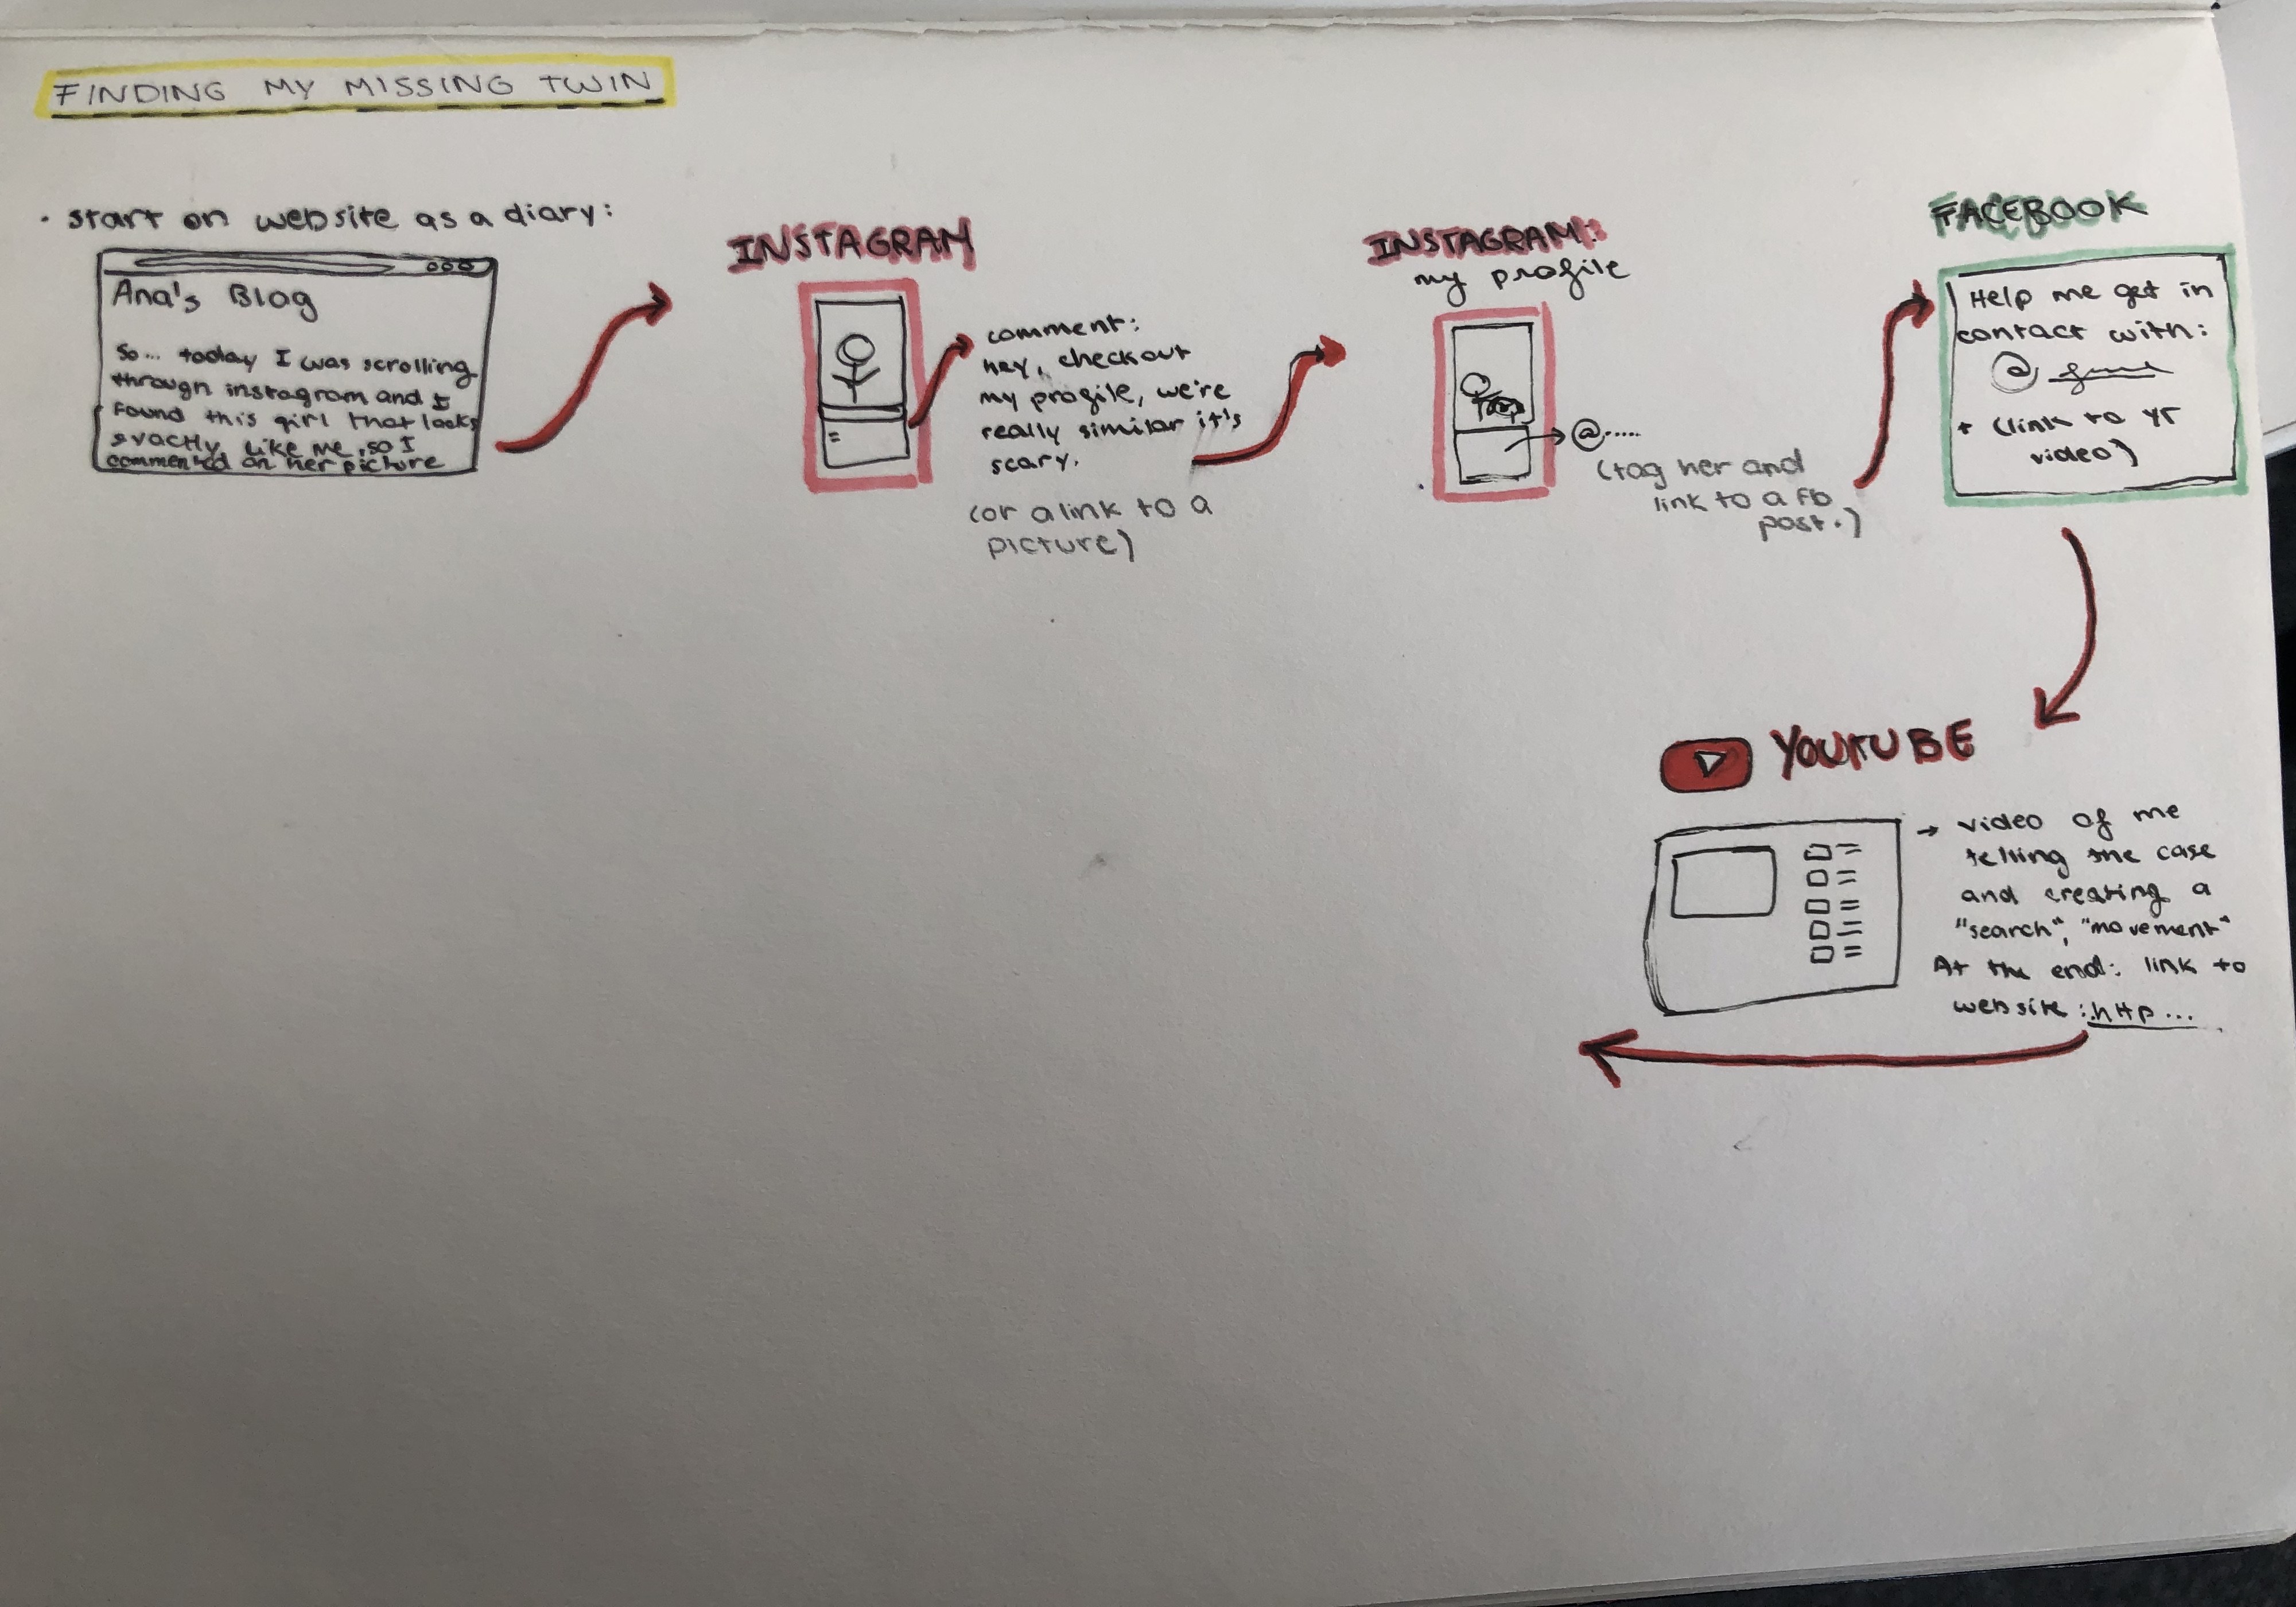 FINDING MY MISSING TWIN
· start on website as a diary:
Ana's Blog
So... today I was scrolling
through instagram and I
found this girl that looks
exactly like me, so I
commented on her picture
INSTAGRAM
comment:
hey, checkout
my profile, we're
really similar it's
scary.
(or a link to a
picture)
INSTAGRAM:
my profile
@.....
(tag her and
link to a fb
post.)
FACEBOOK
Help me get in
contact with:
@
+ (link to YT
video)
YOUTUBE
→ video of me
telling the case
and creating a
"search", "movement"
At the end: link to
website: http...